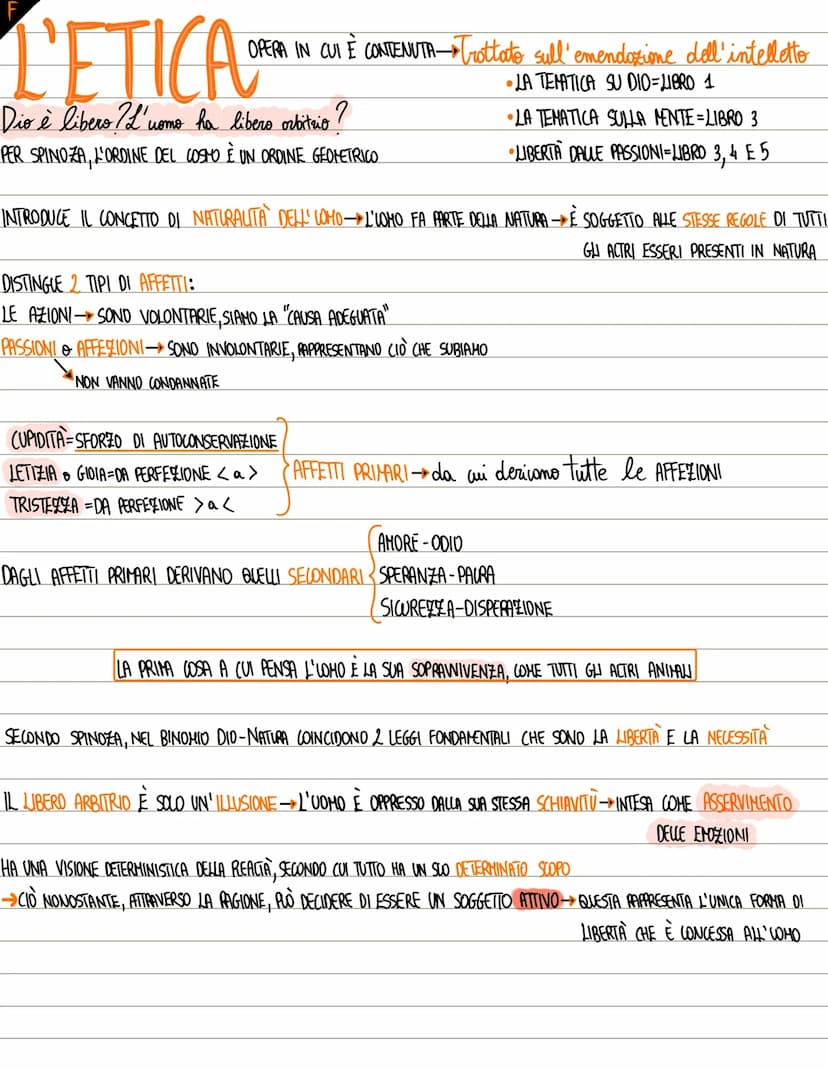 F
L'ETICA
OPERA IN CUI È CONTENUTA→Trattato sull'emendazione dell'intelletto
•LA TEMATICA SU DIO=LIBRO 1
Dio è libero? L'uomo ha libero arbitrio?
•LA TEMATICA SULLA MENTE=LIBRO 3
PER SPINOZA, L'ORDINE DEL COSMO È UN ORDINE GEOMETRICO
•LIBERTÀ DALLE PASSIONI=LIBRO 3, 4 E 5
INTRODUCE IL CONCETTO DI NATURALITÀ DELL'UOMO→L'UOMO FA PARTE DELLA NATURA→È SOGGETTO ALLE STESSE REGOLE DI TUTTI
GLI ALTRI ESSERI PRESENTI IN NATURA
DISTINGUE 2 TIPI DI AFFETTI:
LE AZIONI→SONO VOLONTARIE, SIAMO LA "CAUSA ADEGUATA"
PASSIONI o AFFEZIONI→SONO INVOLONTARIE, RAPPRESENTANO CIÒ CHE SUBIAMO
NON VANNO CONDANNATE
CUPIDITÀ=SFORZO DI AUTOCONSERVAZIONE
LETIZIA o GIOIA=DA PERFEZIONE < a >
AFFETTI PRIMARI→da cui derivano tutte le AFFEZIONI
TRISTEZZA=DA PERFEZIONE > a <
AMORE-ODIO
DAGLI AFFETTI PRIMARI DERIVANO QUELLI SECONDARI
SPERANZA-PAURA
SICUREZZA-DISPERAZIONE
LA PRIMA COSA A CUI PENSA L'UOMO È LA SUA SOPRAVVIVENZA, COME TUTTI GLI ALTRI ANIMALI
SECONDO SPINOZA, NEL BINOMIO DIO-NATURA COINCIDONO 2 LEGGI FONDAMENTALI CHE SONO LA LIBERTÀ E LA NECESSITÀ
IL LIBERO ARBITRIO È SOLO UN'ILLUSIONE→L'UOMO È OPPRESSO DALLA SUA STESSA SCHIAVITÙ→INTESA COME ASSERVIMENTO
DELLE EMOZIONI
HA UNA VISIONE DETERMINISTICA DELLA REALTÀ, SECONDO CUI TUTTO HA UN SUO DETERMINATO SCOPO
→CIÒ NONOSTANTE, ATTRAVERSO LA RAGIONE, PUÒ DECIDERE DI ESSERE UN SOGGETTO ATTIVO→QUESTA RAPPRESENTA L'UNICA FORMA DI
LIBERTÀ CHE È CONCESSA ALL'UOMO